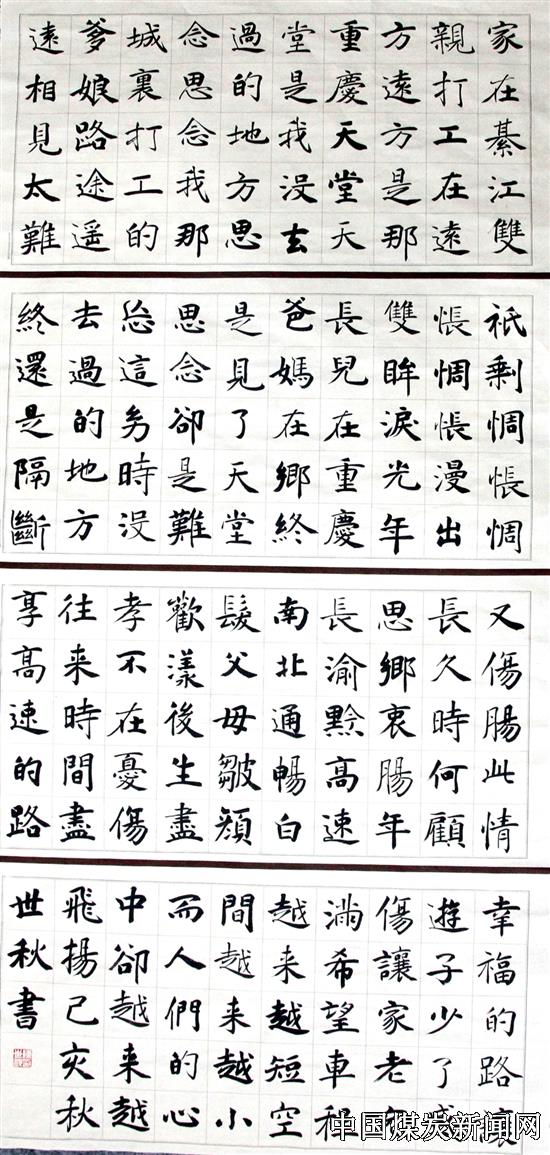 家在綦江雙
親打工在遠
方遠方是那
重慶天堂天
堂是我没去
過的地方思
念思念我那
城裏打工的
爹娘路途遥
遠相見太難
祇剩惆悵惆
悵惆悵漫出
雙眸淚光年
長兒在重慶
爸媽在鄉終
是見了天堂
思念卻是難
這時没
去過的地方
終還是隔斷
又傷腸此情
長久時何顧
思鄉衷腸年
長渝黔高速
南北通暢白
髮父母皺顏
歡漾後生盡
孝不在憂傷
往来時間盡
享高速的路
幸福的路讓
遊子少了
傷讓家老
滿希望車程
越来越短空
間越来越小
而人們的心
中卻越来越
飛揚己亥秋
世秋書
中国煤炭新闻网